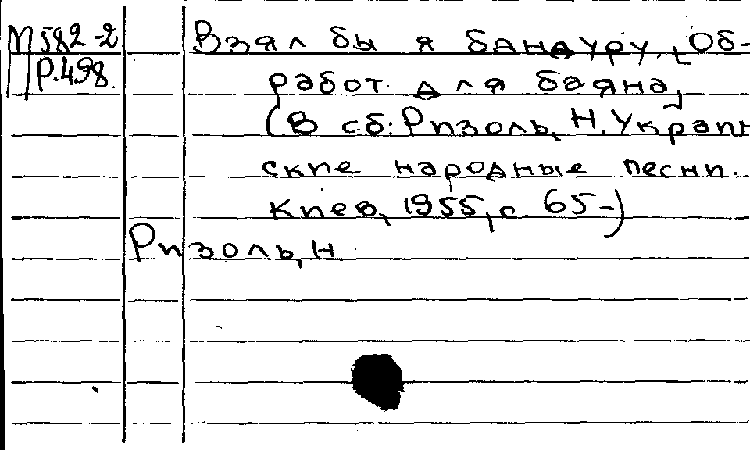 М582-2
Р.498
Взял бы я бандуру. [Об-
работ. для баяна]
(В сб: Ризоль, Н. Украин
ские народные песни.
Киев, 1955, с 65-)
Ризоль, Н